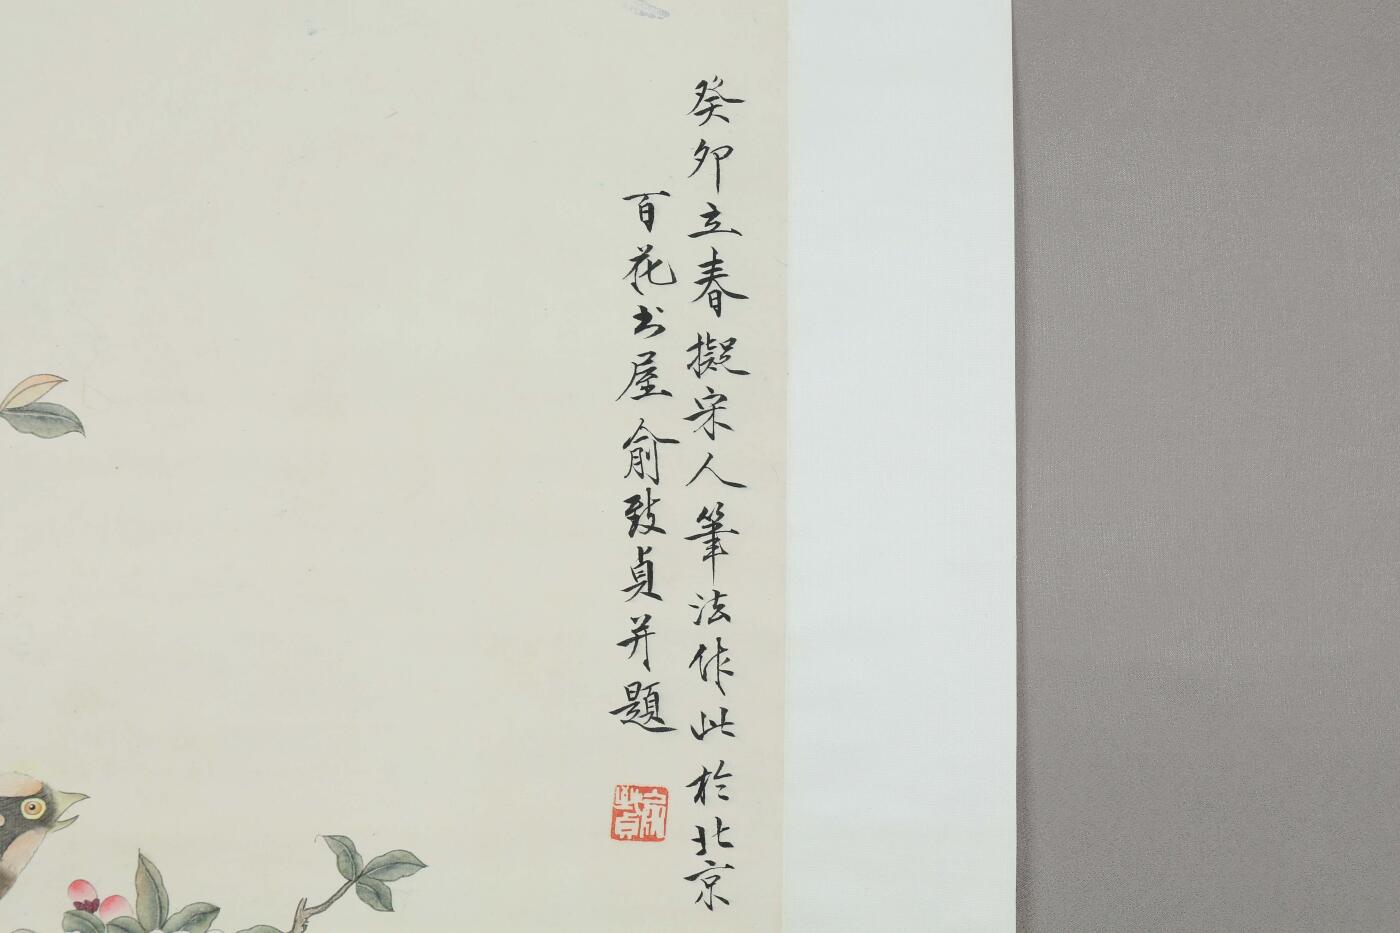 癸卯立春擬宋人筆法作此於北京
百花书屋俞致貞并題
俞致貞